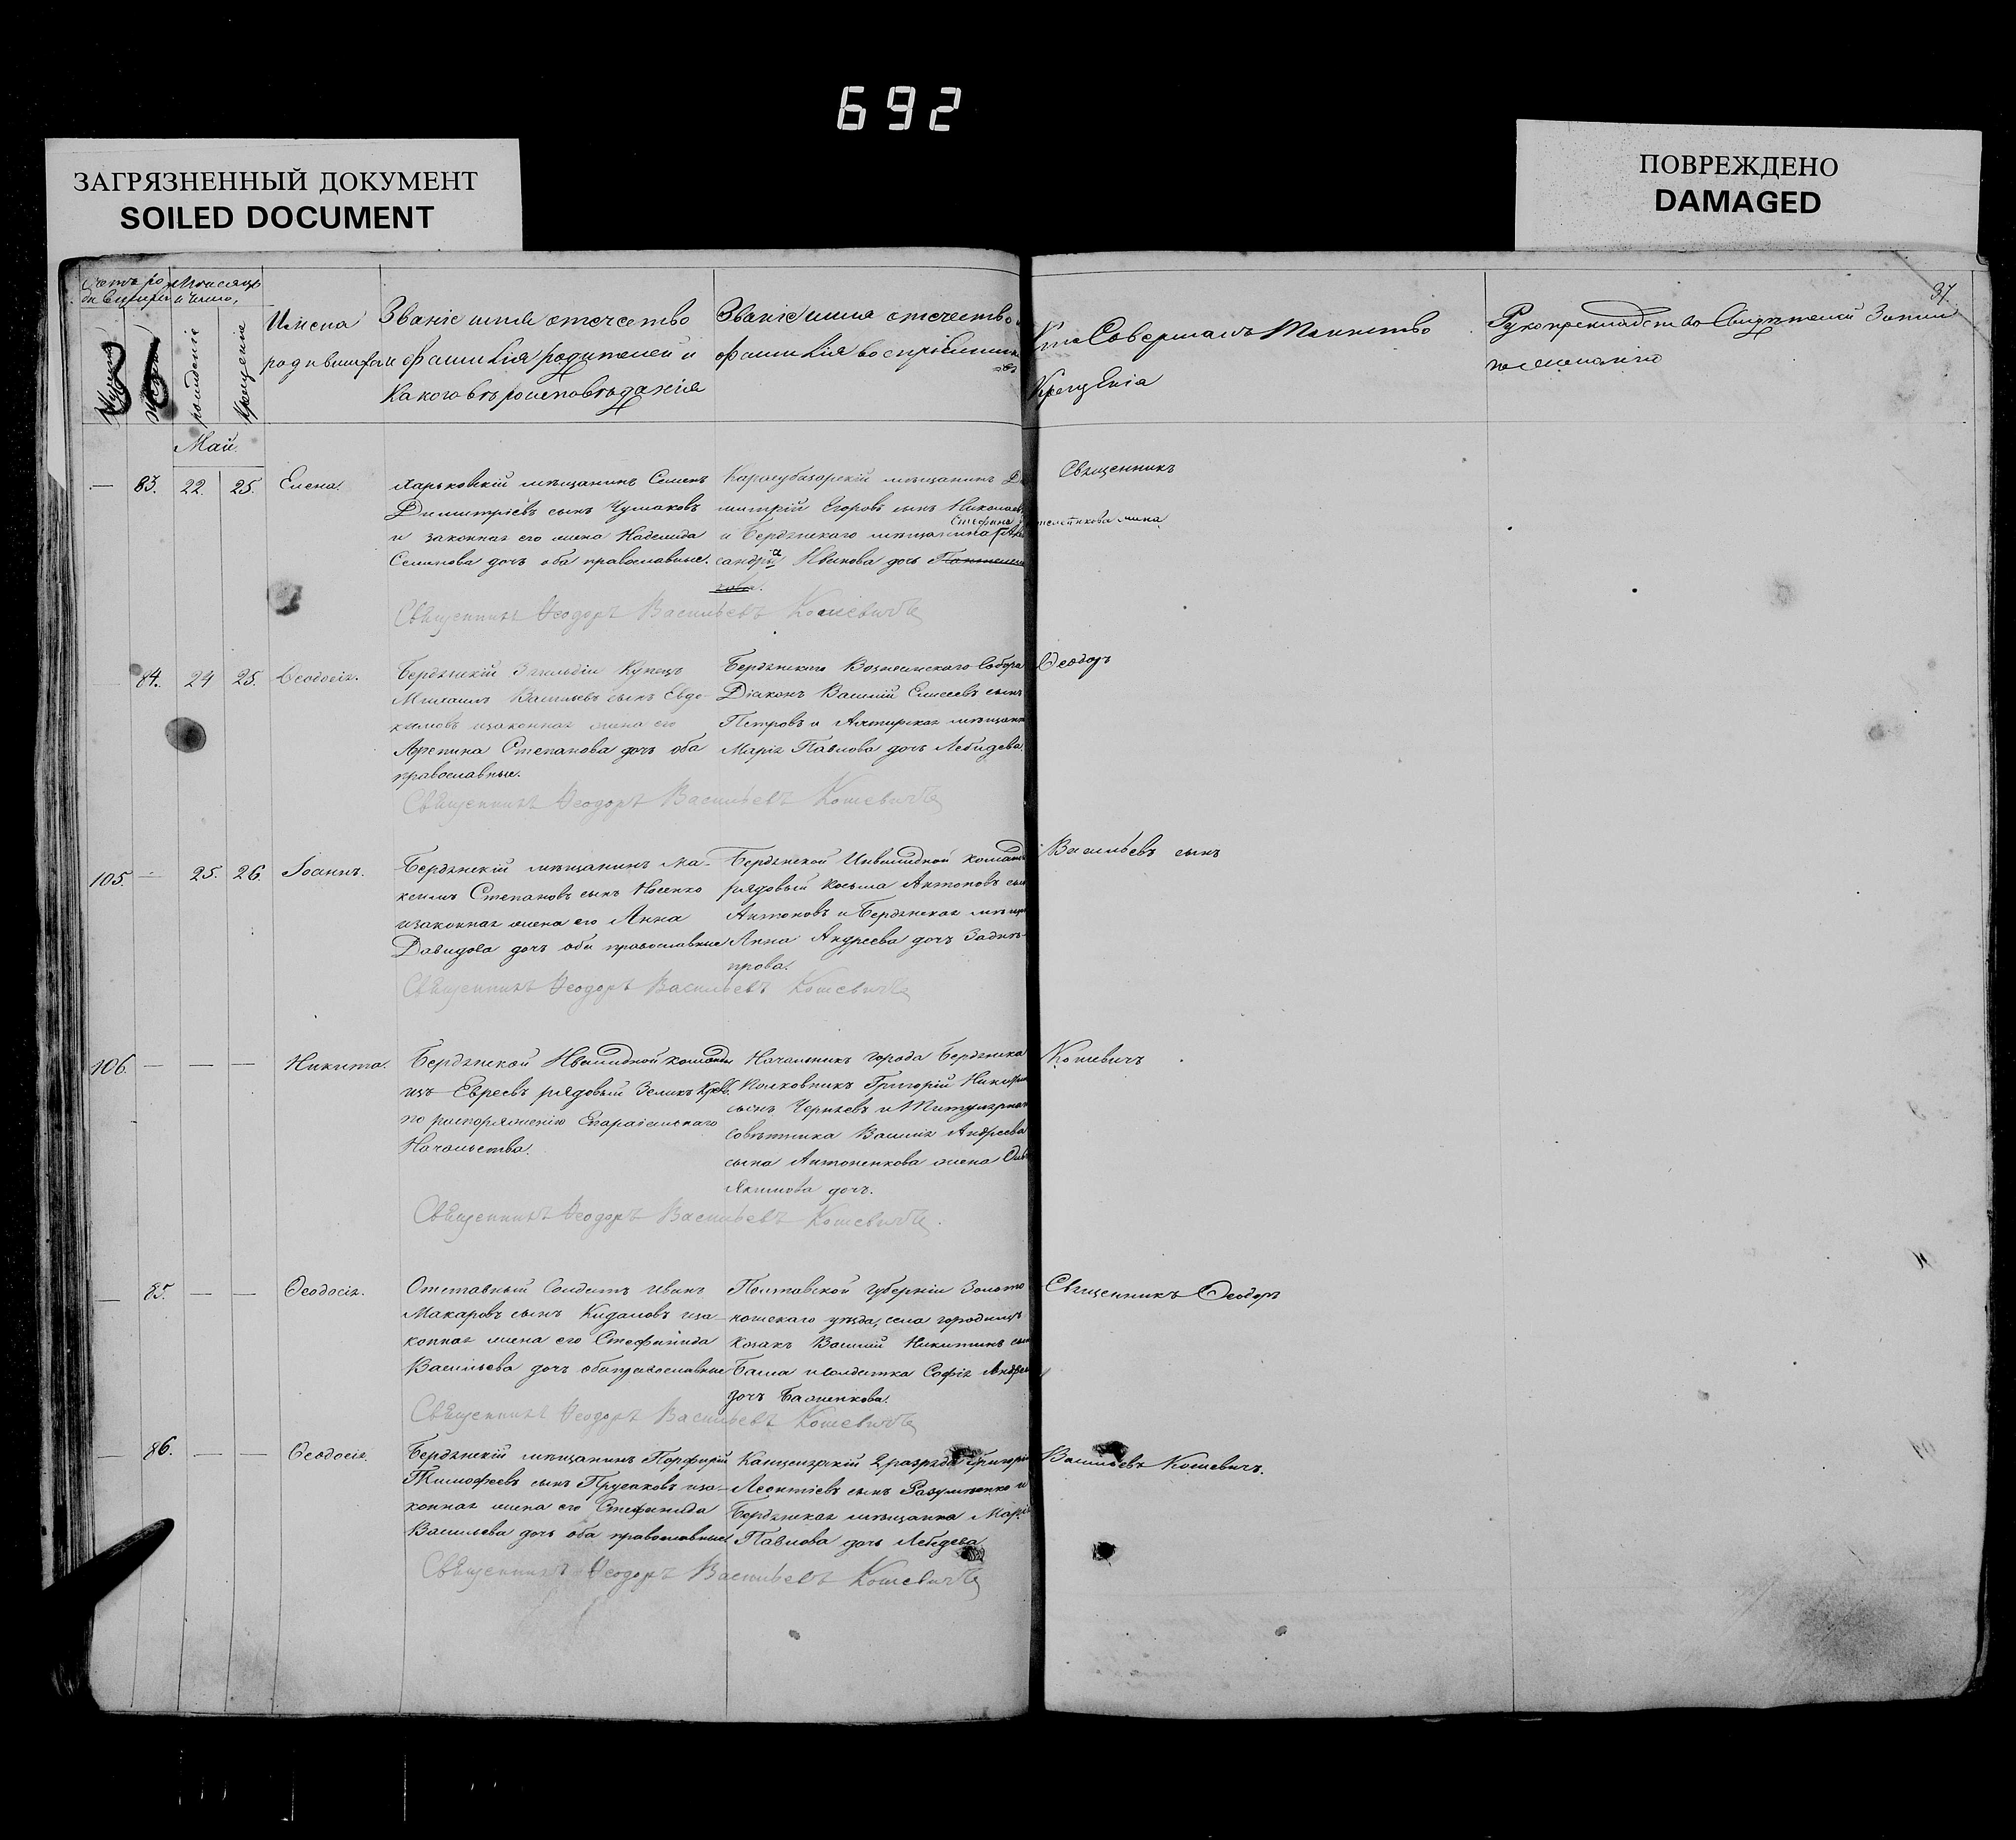 692
ЗАГРЯЗНЕННЫЙ ДОКУМЕНТ
SOILED DOCUMENT
ПОВРЕЖДЕНО
DAMAGED
37
Имена
родившихся
Званіе имя отечество
и фамилія родителей и
какого вѣроисповѣданія
Званіе имя отечество
фамилія воспріемни
ков
Кто Совершалъ Таинство
Крещенія
рожденіе
Крещеніе
Май.
— 83. 22. 25. Елена.
Харьковскій мѣщанинъ Семенъ
Димитріевъ сынъ Чумаковъ
и законная его жена Надежда
Семенова дочь оба православные.
Карасубазарскій мѣщанинъ Ди
митрій Егоровъ сынъ Николаев
и Бердянскаго мѣщанина Стефана
Иванова дочь
Священникъ
Священникъ Ѳеодоръ Васильевъ Кошевичъ
— 84. 24 25. Ѳеодосія.
Бердянскій 3 гильдіи Купецъ
Михаилъ Васильевъ сынъ Евдо-
кимовъ изаконная жена его
Агрепина Степанова дочь оба
православные.
Бердянскаго Вознесенскаго Собора
Діаконъ Василій Елисеевъ сынъ
Петровъ и Ахтирская мѣщанк
Марія Павлова дочь Лебидева.
Ѳеодоръ
Священникъ Ѳеодоръ Васильевъ Кошевичъ
105. — 25. 26. Іоаннъ.
Бердянскій мѣщанинъ Ма-
ксимъ Степановъ сынъ Носенко
изаконная жена его Анна
Давидова дочь оба православные
Бердянской Инвалидной команды
рядовый Косьма Антоновъ сын
Антоновъ и Бердянская мѣщан
Анна Андреева дочь Заднѣ-
прова.
Васильевъ сынъ
Священникъ Ѳеодоръ Васильевъ Кошевичъ
106. — — — Никита.
Бердянской Инвалидной команды
изъ Евреевъ рядовый Зелихъ
по распоряженію Епархіальнаго
Начальства.
Начальникъ города Бердянска
Полковникъ Григорій
сынъ Черняевъ и Титулярнаго
Совѣтника Василія Андреева
сына Антоненкова жена
Якимова дочь.
Кошевичъ
Священникъ Ѳеодоръ Васильевъ Кошевичъ.
— 85. — — Ѳеодосія.
Отставный Солдатъ Иванъ
Макаровъ сынъ Кидаловъ иза-
конная жена его Стефанида
Васильева дочь оба православные
Полтавской Губерніи Золото
ношскаго уѣзда, села городища
козакъ Василій Никитинъ сын
Баша исолдатка Софія Андреев
дочь Баженкова.
Священникъ Ѳеодоръ
Священникъ Ѳеодоръ Васильевъ Кошевичъ
— 86. — — Ѳеодосія.
Бердянскій мѣщанинъ Порфирій
Тимофеевъ сынъ Прусаковъ иза-
конная жена его Стефанида
Васильева дочь оба православные
Канцелярскій 2 разряда Григорій
Леонтіевъ сынъ Разумненко и
Бердянская мѣщанка Марія
Павлова дочь Лебедева
Васильевъ Кошевичъ.
Священникъ Ѳеодоръ Васильевъ Кошевичъ